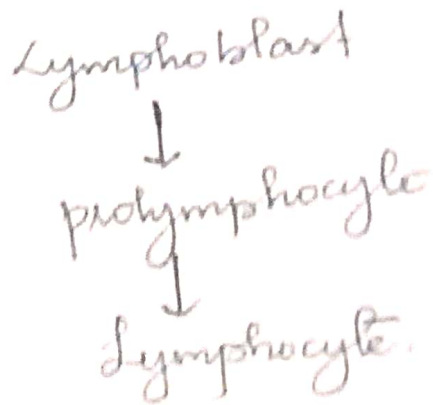 Lymphoblast
↓
prolymphocyte
↓
Lymphocyte.